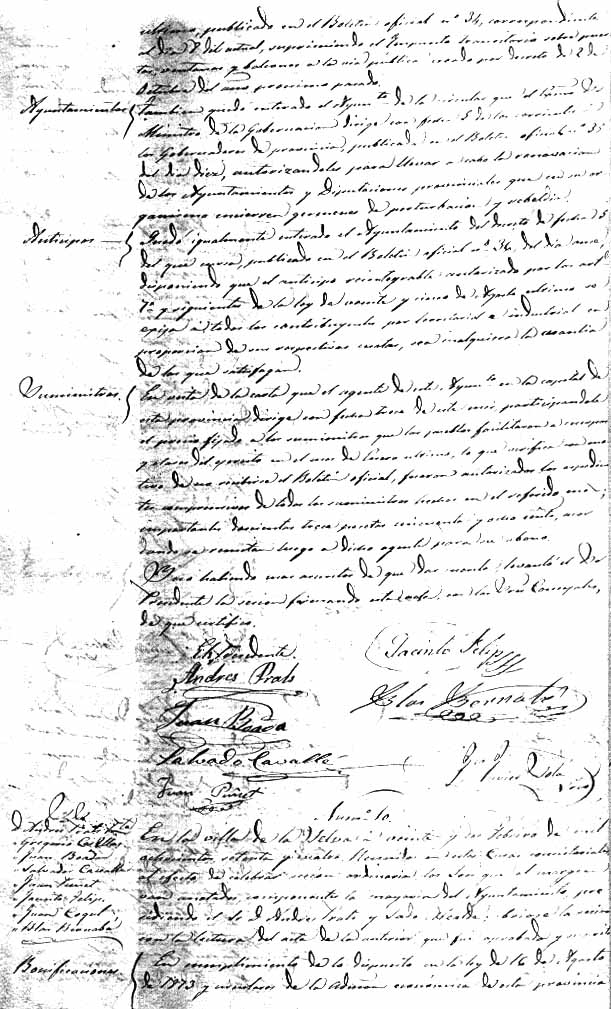 publicado en el Boletin oficial nº 34, correspondiente
al dia 8 del actual, el Impuesto transitorio sobre puer
tas, ventanas y balcones a la via publica creado por decreto de 2 de
Octubre del año proximo pasado.
Ayuntamientos
Tambien quedó enterado el Ayunto de la circular que el Sr
Ministro de la Gobernacion dirige con fecha 5 de los corrientes a
los Gobernadores de provincia, publicada en el Boletin oficial nº 35
del dia diez, autorizandoles para llevar a cabo la renovacion
de los Ayuntamientos y Diputaciones provinciales que en su or
ganismo encierren germenes de perturbacion y rebeldia.
Anticipos
Quedó igualmente enterado el Ayuntamiento del decreto de fecha
del que cursa, publicado en el Boletin oficial nº 36, del dia once,
disponiendo que el anticipo reintegrable autorizado por los artos
7º y siguientes de la ley de veinte y cinco de Agosto ultimo se
exija á todos los contribuyentes por territorial e industrial en
proporcion de sus respectivas cuotas, sea cualquiera la cuantia
de las que satisfagan.
Suministros
En vista de la carta que el agente de este Ayunto en la capital de
esta provincia dirige con fecha trece de este mes participandole
el precio fijado a los suministros que los pueblos facilitaron a cuerpos
y clases del ejercito en el mes de Enero ultimo, lo que verifica con mo
tivo de no recibirse el Boletin oficial, fueron autorizados los espedien
tes comprensivos de todos los suministros hechos en el referido mes,
importantes doscientas trece pesetas cincuenta y ocho cents, acor
dando se remitan luego a dicho agente para su abono.
Y no habiendo mas asuntos de que dar cuenta, levantó el Sr
Presidente la sesion firmando esta acta con los Sres Concejales,
de que certifico.
El Presidente.
Andres Prats
Jacinto Felip
Blas Bernabé
Juan Boada
Salvado Cavallé
Juan Piñet
Numº 10.
Sres
D. Andres Prats
Gregorio
Juan Boada
Salvador Cavallé
Juan Piñet
Jacinto Felip
Juan Cogul
Blas Bernabé
En la villa de la Selva á veinte y Febrero de mil
ochocientos setenta y cuatro. Reunidos en estas Casas consistoriales
al efecto de celebrar sesion ordinaria los Sres que al margen
van anotados componentes la mayoria del Ayuntamiento, pre
sidiendo el Sr D. Andres Prats y Alcalde;
con la lectura del acta de la anterior que fué aprobada
Bonificaciones
En cumplimiento de lo dispuesto en la ley de 16 de Agosto
de 1873 y circulares de la Admon economica de esta provincia